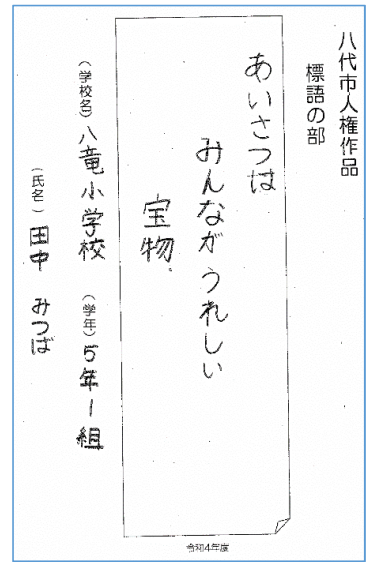 八代市人権作品
標語の部
あいさつは
みんながうれしい
宝物、
（学校名）八竜小学校　（学年）５年１組
（氏名）田中　みつば
令和4年度